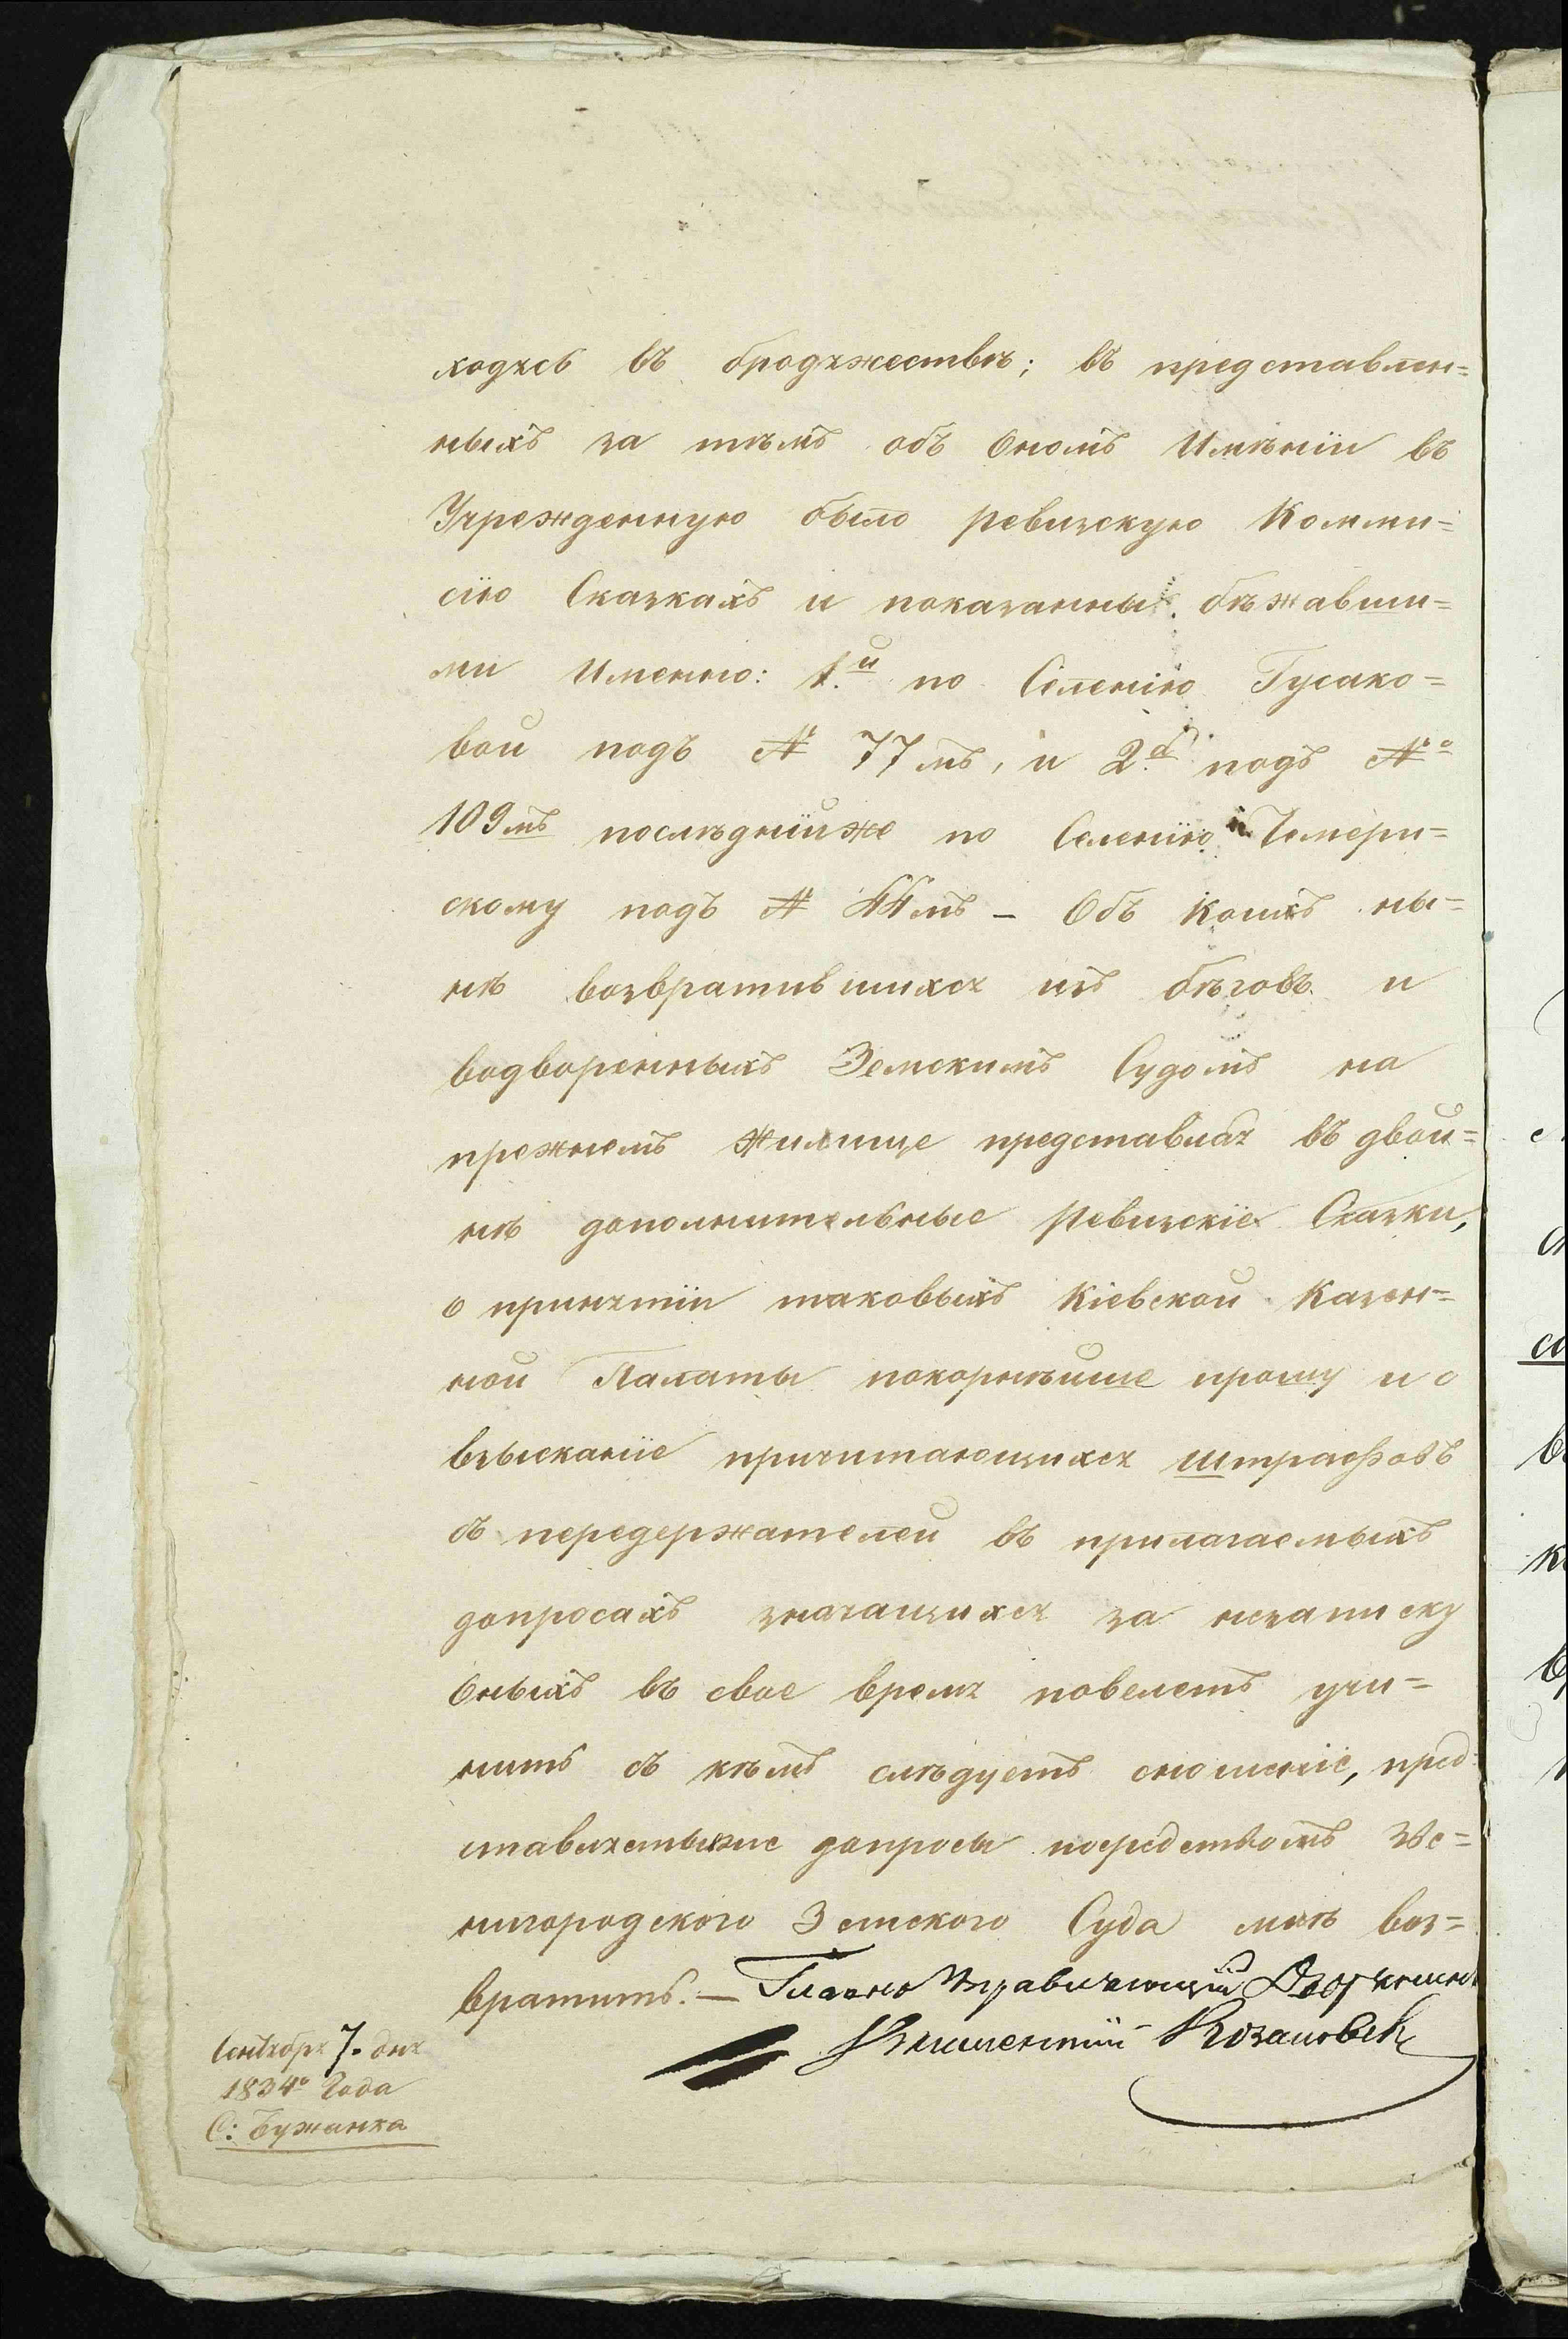 ходясь въ бродяжествѣ; въ представлен=
ныхъ за тѣмъ объ Ономъ Имѣніи въ
Учрежденную было ревизскую Комми=
сію Сказкахъ и показанны бѣжавши=
ми Именно: 1.й по Селенію Гусако=
вой подъ № 77мъ, и 2.й подъ №о
109мъ послѣднійже по Селенію Чемери=
скому подъ № 44мъ — Объ Коихъ ны=
нѣ возвратившихся изъ бѣговъ и
водворенныхъ Земскимъ Судомъ на
прежнемъ Жилище представляя въ двой=
нѣ дополнительные Ревизскіе Сказки,
о принятіи таковыхъ Кіевской Казен=
ной Палаты покорнѣйше прошу и о
взысканіе причитающихся штрафовъ
съ передержателей въ прилагаемыхъ
допросахъ значащихся за незаписку
Оныхъ въ свое время повелеть учи=
нить съ кѣмъ слѣдуетъ сношеніе, пред
ставляемыеже допросы посредствомъ Зве=
нигородского Земского Суда мнѣ воз=
вратить. — Главно Управляющій Дворянинъ
Климентій Козановск
Сентября 7. дня
1834о Года
С: Бужанка